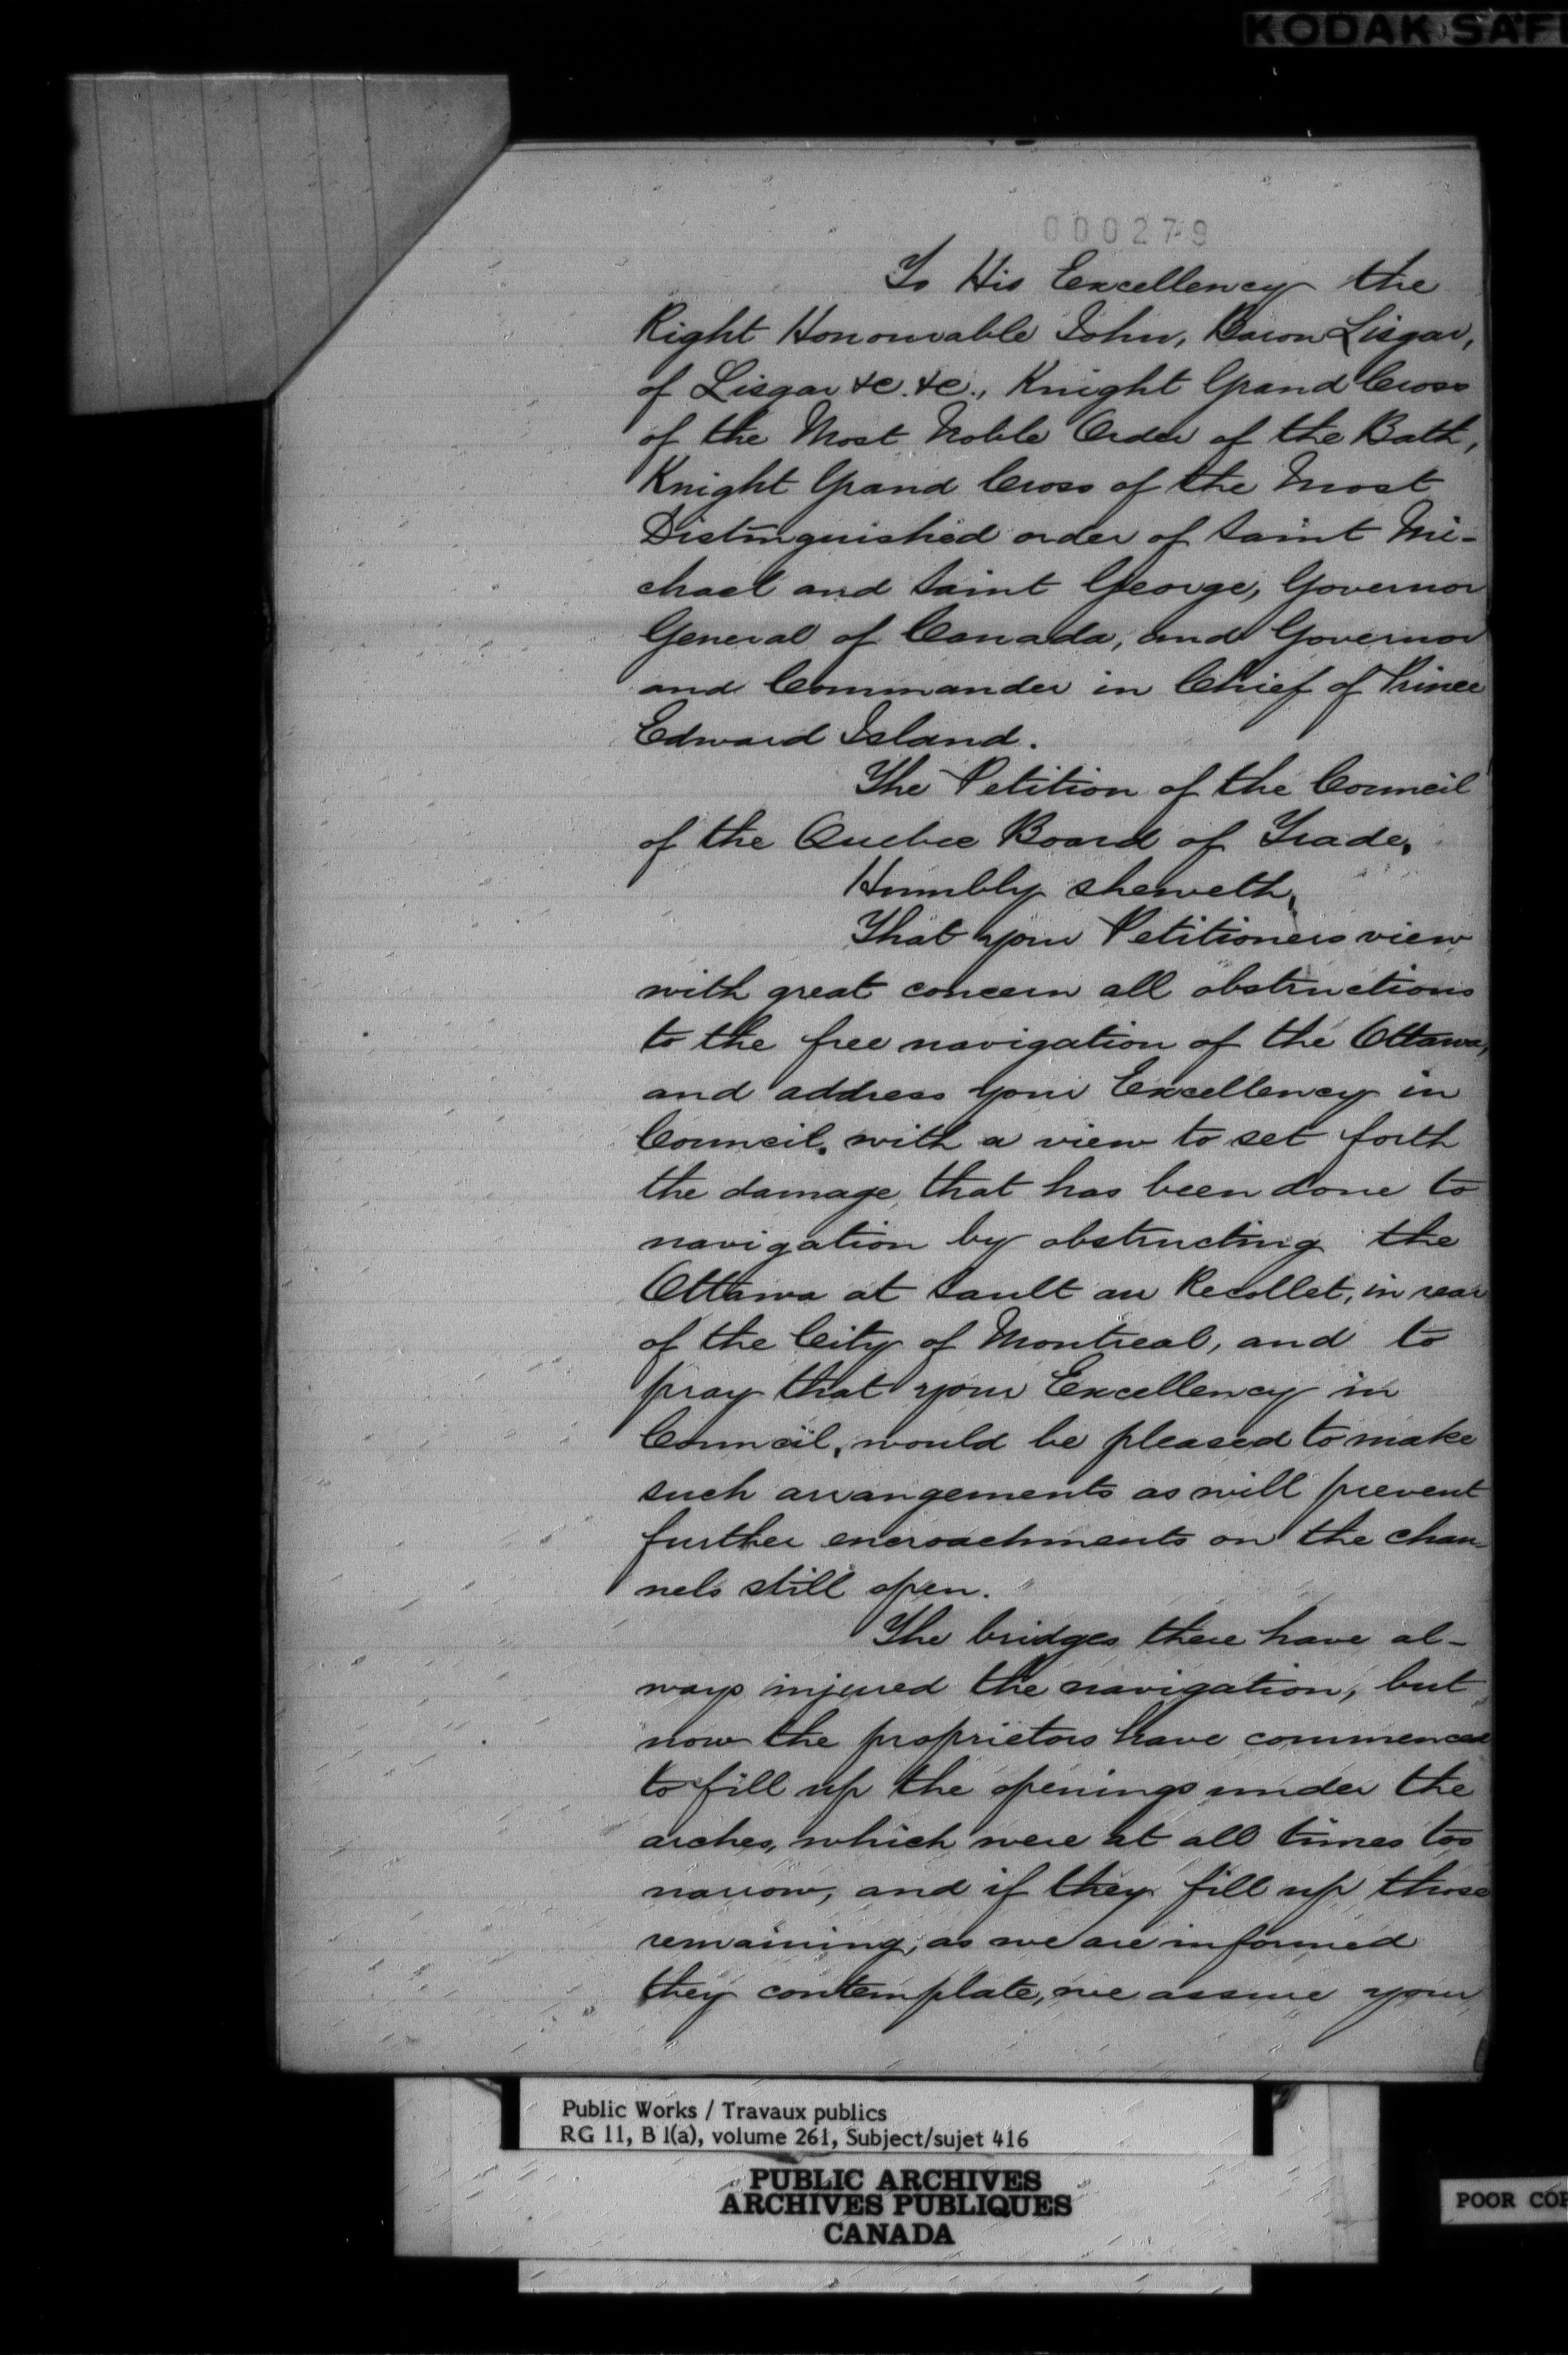 KODAK SAF
000279
To His Excellency the
Right Honourable John, Baron Lisgar,
of Lisgar &c. &c., Knight Grand Cross
of the Most Noble Order of the Bath,
Knight Grand Cross of the Most
Distinguished order of Saint Mi-
chael and Saint George, Governor
General of Canada, and Governor
and Commander in Chief of Prince
Edward Island.
The Petition of the Council
of the Quebec Board of Trade,
Humbly sheweth,
That your Petitioners view
with great concern all obstructions
to the free navigation of the Ottawa,
and address your Excellency in
Council, with a view to set forth
the damage, that has been done to
navigation by obstructing the
Ottawa at Sault au Recollet, in rear
of the City of Montreal, and to
pray that your Excellency in
Council, would be pleased to make
such arrangements as will prevent
further encroachments on the chan-
nels still open.
The bridges there have al-
ways injured the navigation, but
now the proprietors have commenced
to fill up the openings under the
arches, which were at all times too
narrow, and if they fill up those
remaining, as we are informed
they contemplate, we assure your
Public Works / Travaux publics
RG 11, B 1(a), volume 261, Subject/sujet 416
PUBLIC ARCHIVES
ARCHIVES PUBLIQUES
CANADA
POOR COP